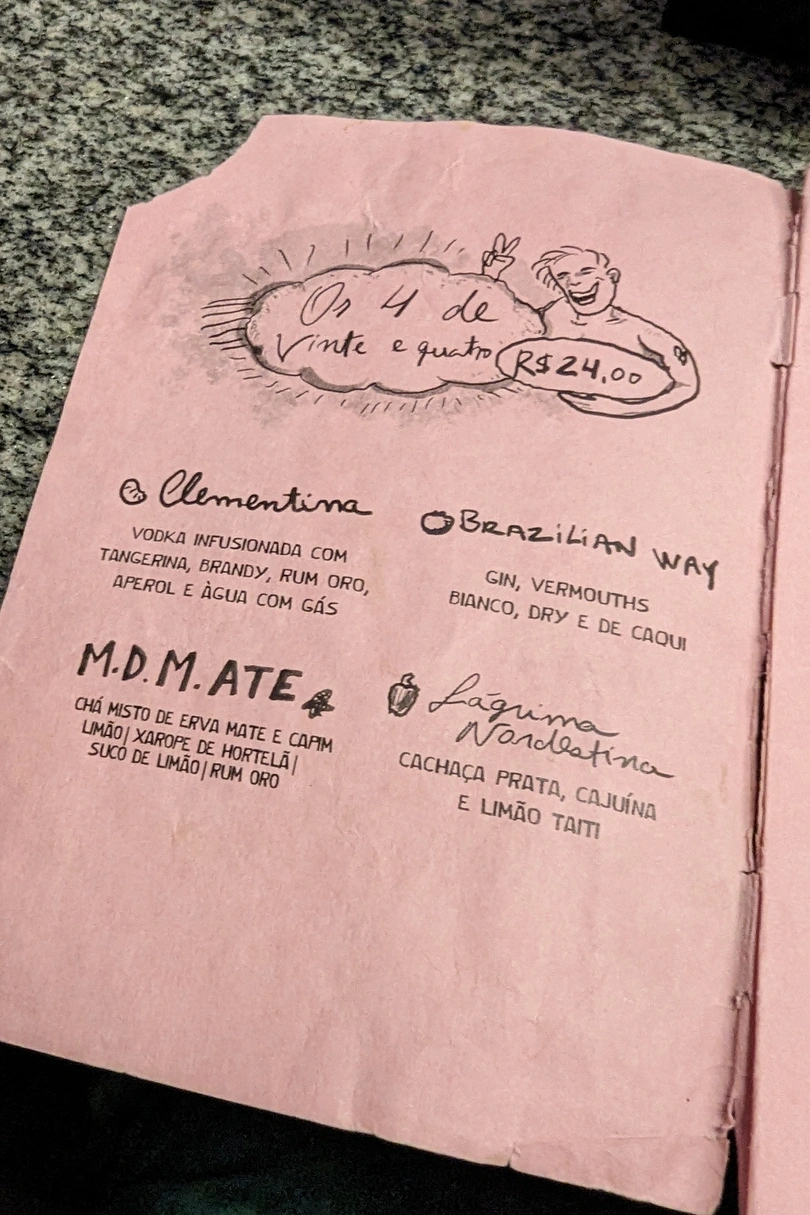 Os 4 de
Vinte e quatro
R$24,00
Clementina
VODKA INFUSIONADA COM
TANGERINA, BRANDY, RUM ORO,
APEROL E ÀGUA COM GÁS
BRAZILIAN WAY
GIN, VERMOUTHS
BIANCO, DRY E DE CAQUI
M.D.M.ATE
CHÁ MISTO DE ERVA MATE E CAPIM
LIMÃO| XAROPE DE HORTELÃ|
SUCO DE LIMÃO| RUM ORO
Lágrima
Nordestina
CACHAÇA PRATA, CAJUÍNA
E LIMÃO TAITI